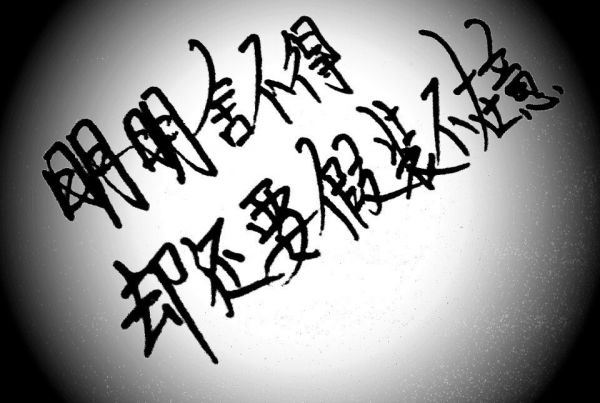 明明舍不得
却还要假装不在意